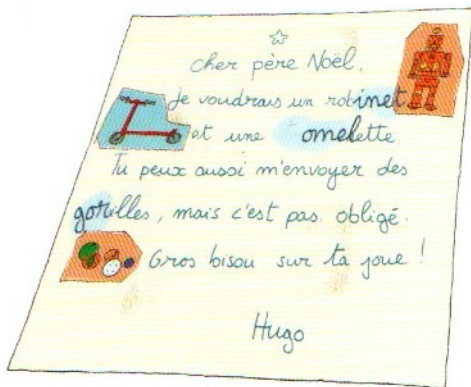 Cher père Noël,
je voudrais un robinet
et une omelette
Tu peux aussi m'envoyer des
gorilles, mais c'est pas obligé.
Gros bisou sur ta joue !
Hugo